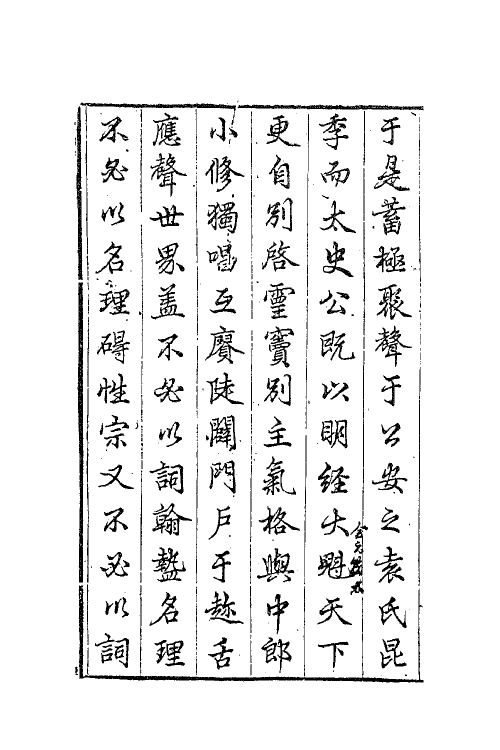 于是蓄極聚聲于公安之袁氏昆
季而太史公既以明經大魁天下
更自別啓靈竇別主氣格與中郎
小修獨唱互賡陡闢門戶于趂舌
應聲世界盖不必以詞翰蟄名理
不必以名理碍性宗又不必以詞